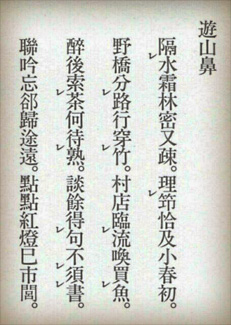 遊山鼻
隔水霜林密又疎。理笻恰及小春初。
野橋分路行穿竹。村店臨流喚買魚。
醉後索茶何待熟。談餘得句不須書。
聯吟忘卻歸途遠。點點紅燈已市閭。